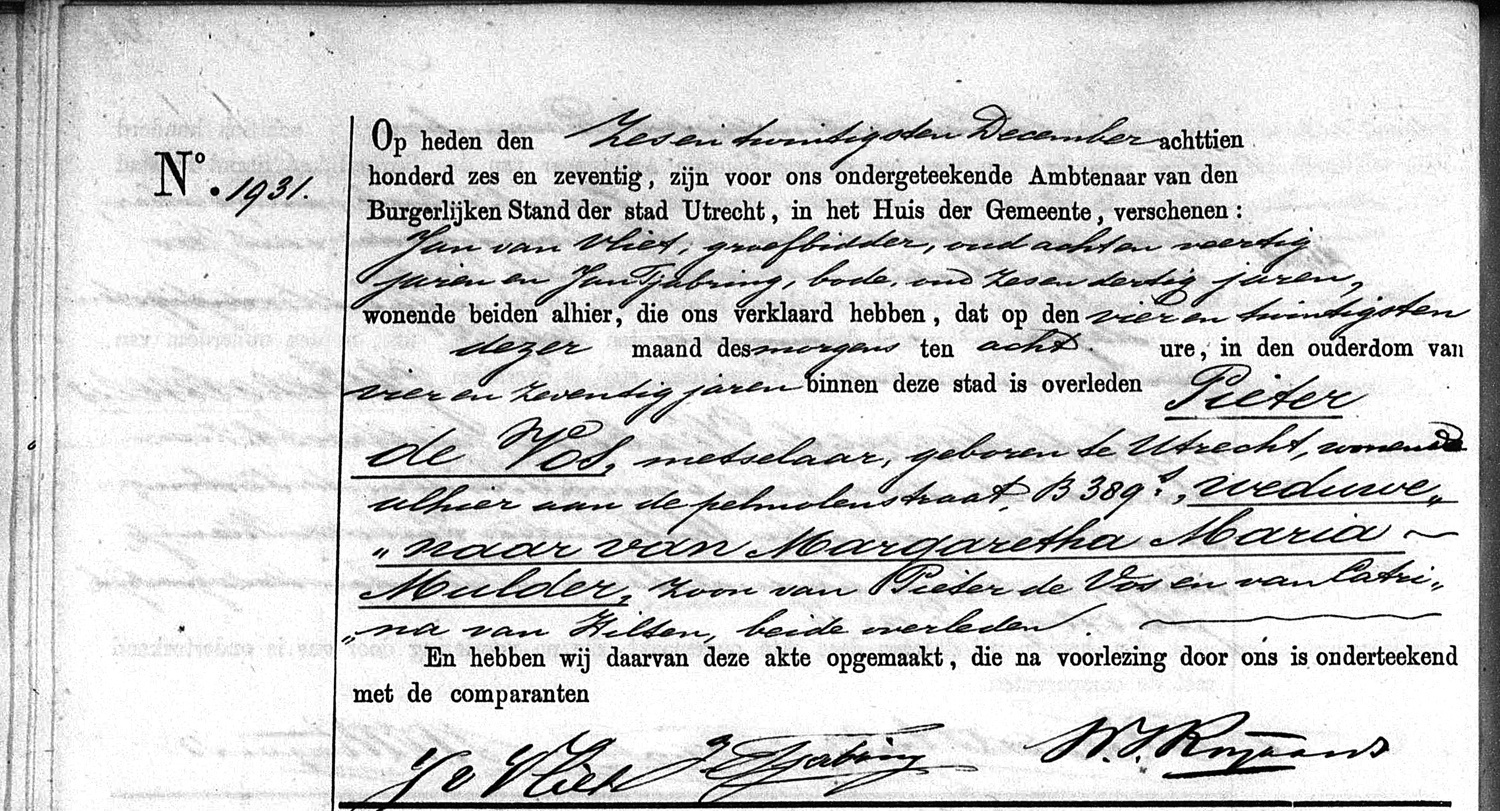 Op heden den Zes en twintigsten December achttien
N°. 1931.
honderd zes en zeventig, zijn voor ons ondergeteekende Ambtenaar van den
Burgerlijken Stand der stad Utrecht, in het Huis der Gemeente, verschenen:
Jan van Vliet, groefbidder, oud acht en veertig
jaren en Jan Tjabring, bode, oud zes en dertig jaren,
wonende beiden alhier, die ons verklaard hebben, dat op den vier en twintigsten
dezer maand des morgens ten acht ure, in den ouderdom van
vier en zeventig jaren binnen deze stad is overleden Pieter
de Vos, metselaar, geboren te Utrecht, wonende
alhier aan de pelmolenstraat, B 389, weduwe„
„naar van Margaretha Maria ~
Mulder, zoon van Pieter de Vos en van Catri„
„na van Hilten, beide overleden.
En hebben wij daarvan deze akte opgemaakt, die na voorlezing door ons is onderteekend
met de comparanten
J v Vliet J Tjabring